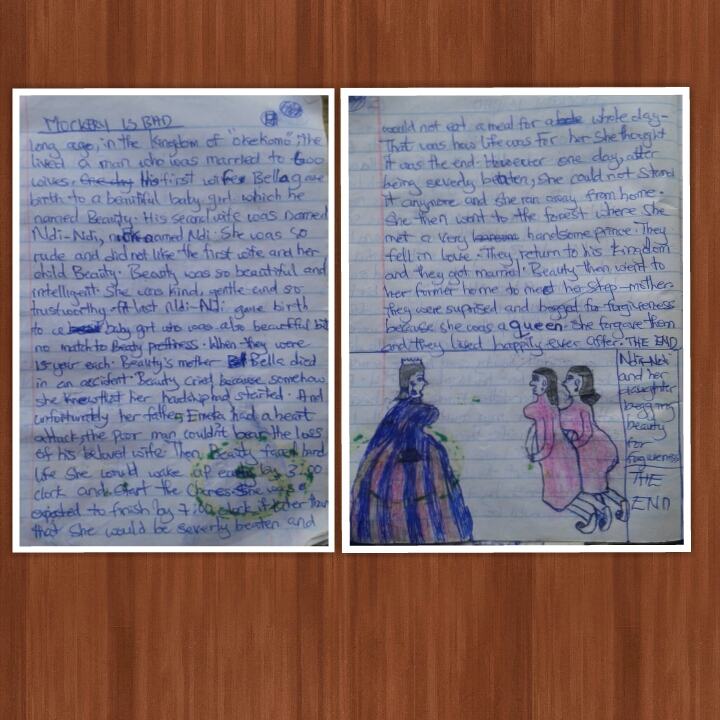 MOCKERY IS BAD
long ago, in the Kingdom of "okekomo", the
lived a man who was married to two
wives. his first wife Bella gave
birth to a beautiful baby girl which he
named Beauty. His second wife was named
Ndi-Ndi, named Ndi. She was so
rude and did not like the first wife and her
child Beauty. Beauty was so beautiful and
intelligent. She was kind, gentle and so
trustworthy. At last Ndi-Ndi gave birth
to a baby girl who was also beautiful but
no match to Beaty prettiness. When they were
year each. Beauty's mother Bella died
in an accident. Beauty cried because somehow
she knew that her hardship had started. And
unfortunately her father, Emeka had a heart
attack, the poor man couldn't bear the loss
of his beloved wife. Then, Beauty faced hard
life she would wake up early by 3:00
clock and start the chores. She was
expected to finish by 7:00 clock if later than
that she would be severly beaten and
would not eat a meal for a whole day-
That was how life was for her. She thought
it was the end. However one day, after
being severly beaten, she could not stand
it anymore and she ran away from home.
She then went to the forest where she
met a very handsome prince. They
fell in love. They return to his kingdom
and they got married. Beauty then went to
her former home to meet her step-mother.
they were suprised and begged for forgiveness
because she was a queen. She forgave them
and they lived happily ever after. THE END
Ndi-Ndi
and her
daughter
begging
beauty
for
forgiveness
THE
END